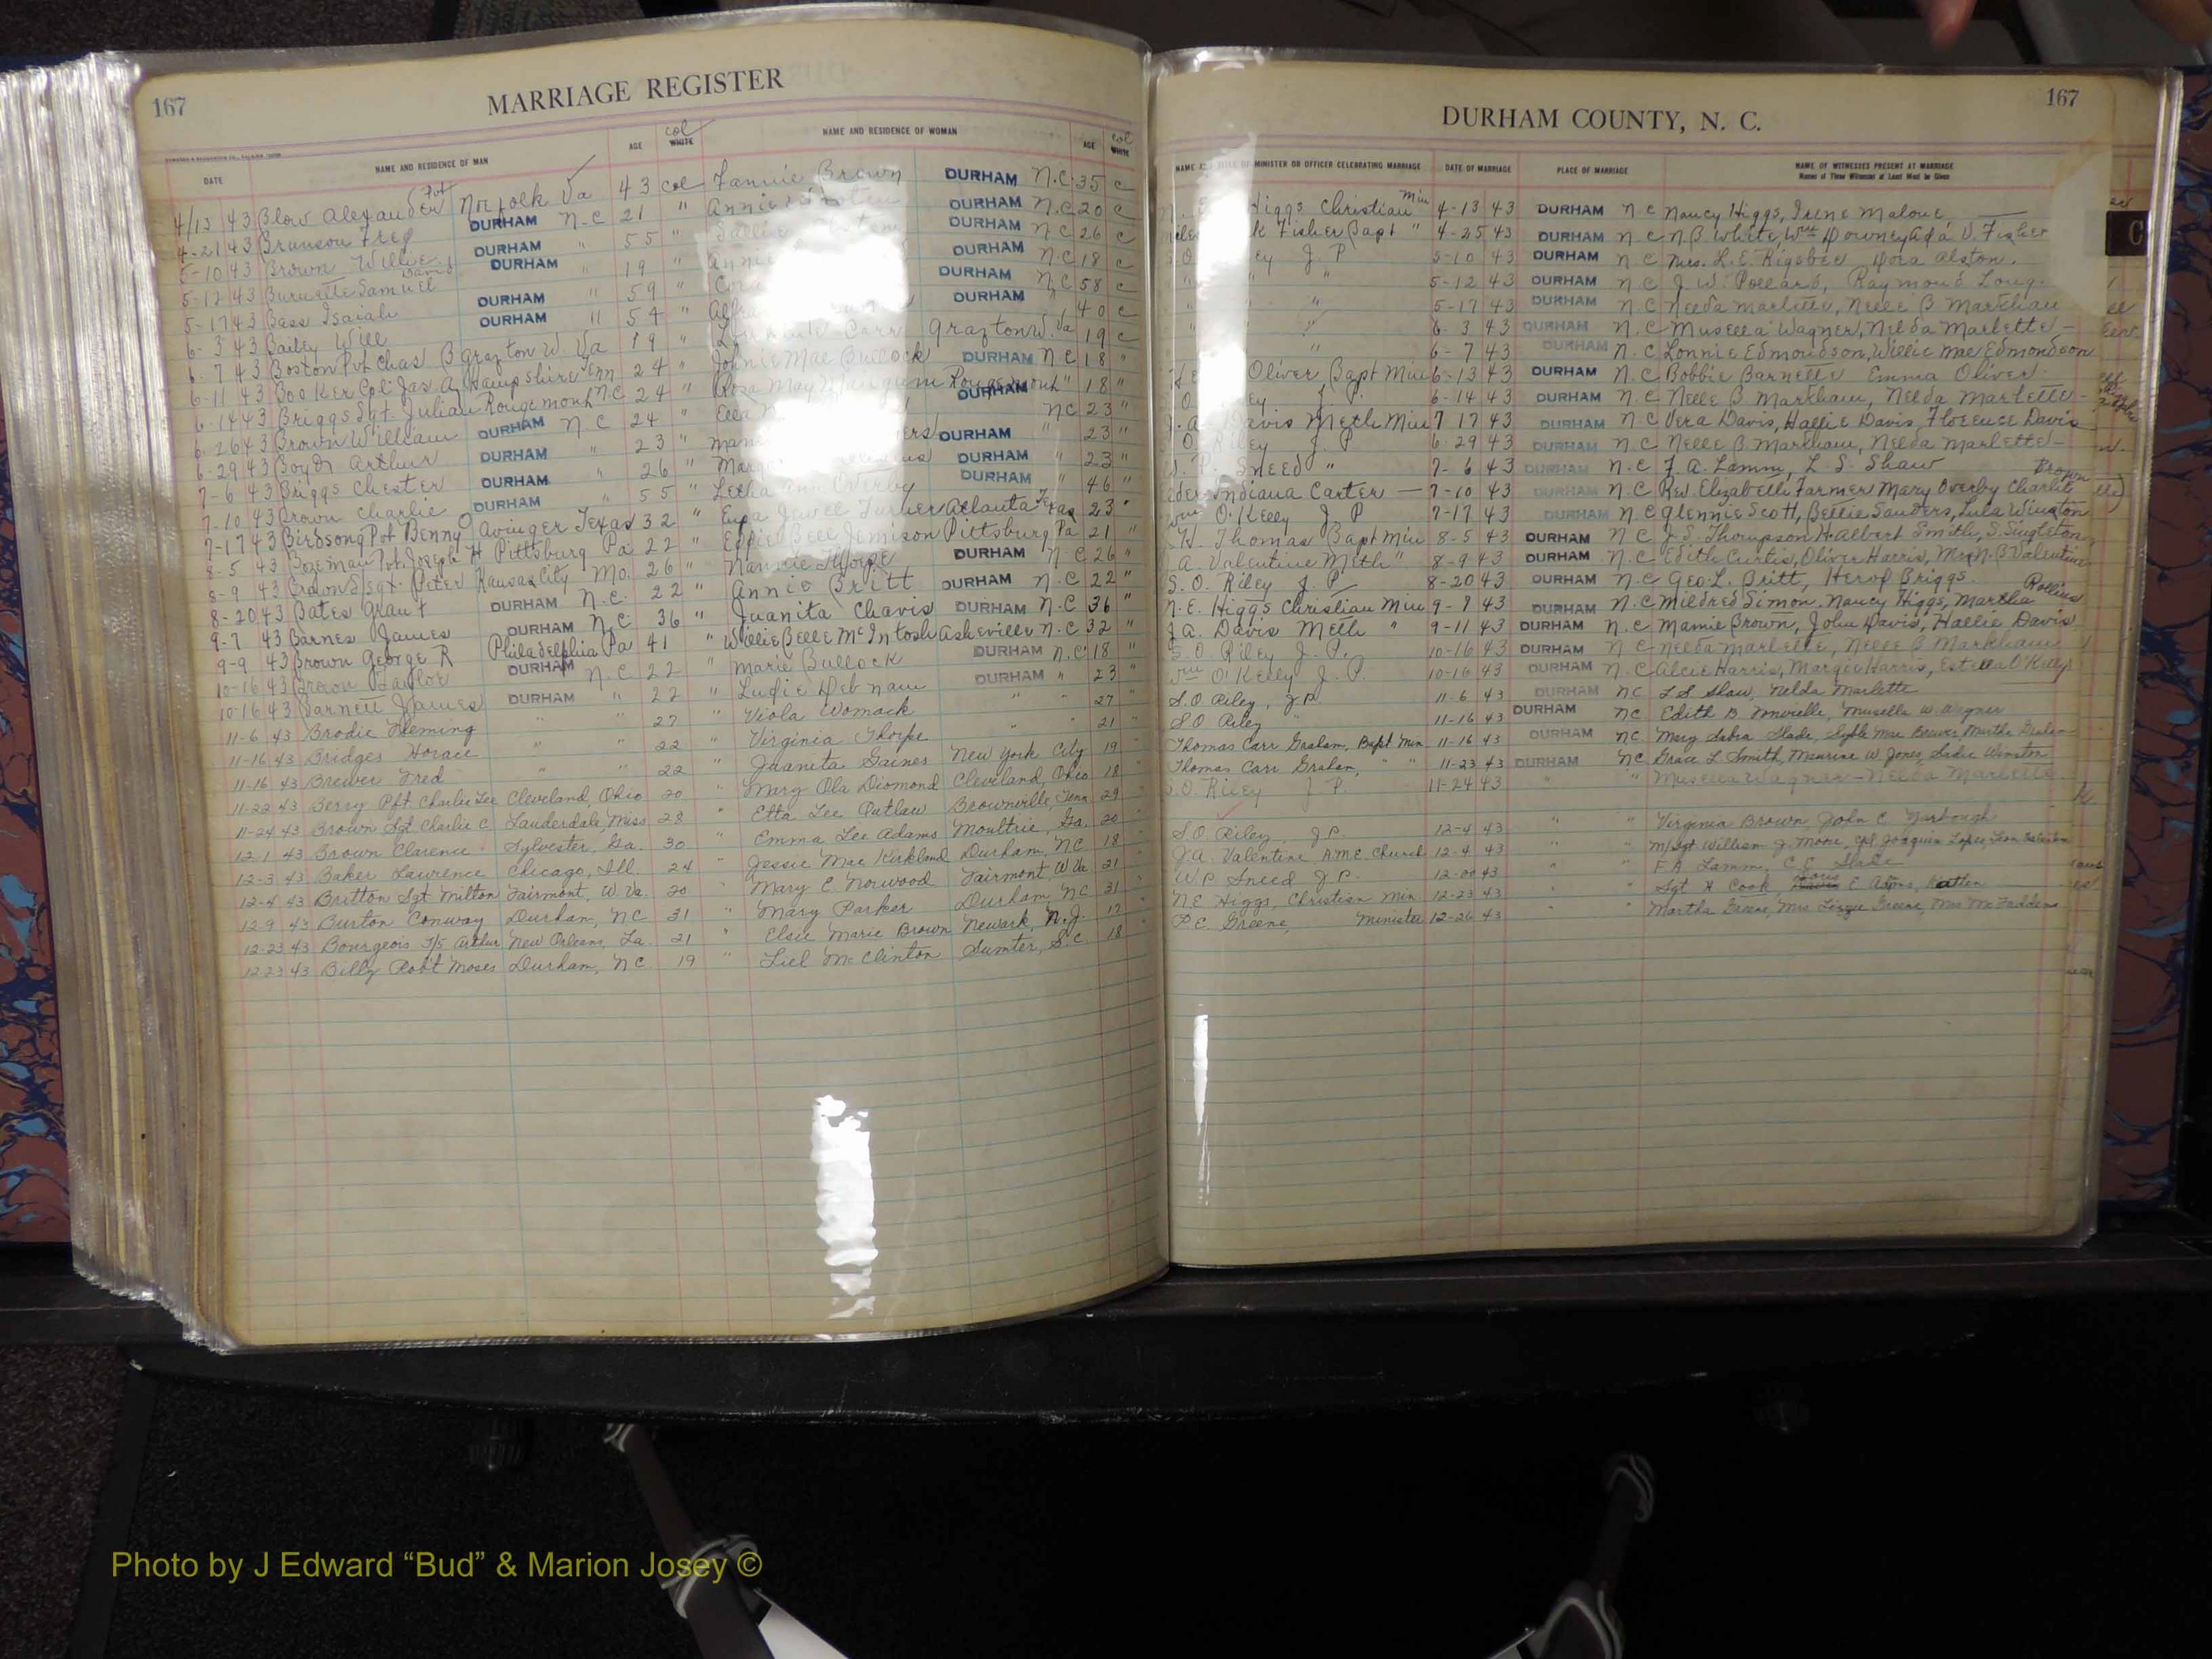 167
MARRIAGE REGISTER
DATE NAME AND RESIDENCE OF MAN AGE col WHITE NAME AND RESIDENCE OF WOMAN AGE col WHITE
4/13 43 Blow Alexander Pvt Norfolk Va 43 col Fannie Brown DURHAM N.C. 35 c
4-21 43 Branson Fred DURHAM N.C 21 " Annie DURHAM N.C. 20 c
5-10 43 Brown Willie DURHAM " 55 " DURHAM N.C 26 c
5-12 43 Burnette Samuel David DURHAM " 19 " DURHAM N.C 18 c
5-17 43 Bass Isaiah DURHAM " 59 " DURHAM N.C 58 c
6-3 43 Bailey Will DURHAM " 54 " DURHAM " 40 c
6-7 43 Boston Pvt Chas B Grazton W. Va 19 " Carr Grazton W. Va 19 c
6-11 43 Booker Cpl Jas A Hampshire Tenn 24 " Johnie Mae Bullock DURHAM N C 18 "
6-14 43 Briggs Sgt. Julian Rougemont N.C 24 " Rosa May Mangum Rougemont " 18 "
6-26 43 Brown William DURHAM N C 24 " Ella DURHAM N C 23 "
6-29 43 Boyd Arthur DURHAM " 23 " DURHAM " 23 "
7-6 43 Briggs Chester DURHAM " 26 " DURHAM " 23 "
7-10 43 Brown Charlie DURHAM " 55 " Letha Ann Overby DURHAM " 46 "
7-17 43 Birdsong Pvt Benny O Avinger Texas 32 " Eura Jewell Turner Atlanta Texas 23 "
8-5 43 Bozeman Pvt. Joseph H Pittsburg Pa 22 " Effie Bell Jemison Pittsburg Pa 21 "
8-9 43 Brown S Sgt. Peter Kansas City Mo. 26 " Nannie Thorpe DURHAM N C 26 "
8-20 43 Bates Grant DURHAM N.C. 22 " Annie Britt DURHAM N.C 22 "
9-7 43 Barnes James DURHAM N C 36 " Juanita Chavis DURHAM N.C 36 "
9-9 43 Brown George R Philadelphia Pa 41 " Willie Belle McIntosh Asheville N.C 32 "
10-16 43 Brown Taylor DURHAM N.C 22 " Marie Bullock DURHAM N.C. 18 "
10-16 43 Barnett James DURHAM " 22 " Ludie Debnam DURHAM " 23 "
11-6 43 Brodie Fleming " " 27 " Viola Womack " " 27 "
11-16 43 Bridges Horace " " 22 " Virginia Thorpe " " 21 "
11-16 43 Brewer Fred " " 22 " Juanita Gaines New York City 19 "
11-22 43 Berry Pft. Charlie Lee Cleveland, Ohio 20 " Mary Ola Diamond Cleveland, Ohio 18 "
11-24 43 Brown Sgt Charlie C Lauderdale, Miss 28 " Etta Lee Outlaw Brownville, Tenn 29 "
12-1 43 Brown Clarence Sylvester, Ga. 30 " Emma Lee Adams Moultrie, Ga. 20 "
12-3 43 Baker Lawrence Chicago, Ill. 24 " Jessie Mae Kirkland Durham, NC 18 "
12-4 43 Britton Sgt Milton Fairmont, W. Va. 20 " Mary E. Norwood Fairmont W Va 21 "
12-9 43 Burton Conway Durham, NC 31 " Mary Parker Durham, NC 31 "
12-23 43 Bourgeois T/5 Arthur New Orleans, La. 21 " Elsie Marie Brown Newark, N.J. 17 "
12-23 43 Billy Robt Moses Durham, NC 19 " Liel McClinton Sumter, S.C. 18 "
167
DURHAM COUNTY, N. C.
MINISTER OR OFFICER CELEBRATING MARRIAGE DATE OF MARRIAGE PLACE OF MARRIAGE NAME OF WITNESSES PRESENT AT MARRIAGE
Names of Three Witnesses at Least Must be Given
Higgs Christian Min 4-13 43 DURHAM N C Nancy Higgs, Irene Malone
Fisher Bapt " 4-25 43 DURHAM N C N B White, Wm Downey, Ada V. Fisher
J. P 5-10 43 DURHAM N C Mrs. L. E. Rigsbee Dora Alston.
" " 5-12 43 DURHAM N.C J. W. Pollard, Raymond Long.
" " 5-17 43 DURHAM N.C Nelda Marlette, Nelle B Markham
" " 6-3 43 DURHAM N.C Musella Wagner, Nelda Marlette
" 6-7 43 DURHAM N.C Lonnie Edmondson, Willie Mae Edmondson
Oliver Bapt Min 6-13 43 DURHAM N.C Bobbie Barnette Emma Oliver
J. P. 6-14 43 DURHAM N.C Nelle B Markham, Nelda Marlette
J. A. Davis Meth Min 7 17 43 DURHAM N C Vera Davis, Hallie Davis, Florence Davis
O Riley J. P 6-29 43 DURHAM N C Nelle B Markham, Nelda Marlette
W. P. Sneed " 7-6 43 DURHAM N.C F. A. Lamm, L. S. Shaw
Indiana Carter 7-10 43 DURHAM N.C Rev. Elizabeth Farmer Mary Overby Charlie Brown
Wm O'Kelly J P 7-17 43 DURHAM N C Glennie Scott, Bettie Sanders, Lula Winston
H. Thomas Bapt Min 8-5 43 DURHAM N C J. S. Thompson H. Albert Smith, S. Singleton
A. Valentine Meth " 8-9 43 DURHAM N C Edith Curtis, Oliver Harris, Mrs N. B Valentine
S. O. Riley J. P 8-20 43 DURHAM N.C Geo. L. Britt, Briggs.
N. E. Higgs Christian Min 9-7 43 DURHAM N.C Mildred Simon, Nancy Higgs, Martha Rollins
J. A. Davis Meth " 9-11 43 DURHAM N.C Mamie Brown, John Davis, Hallie Davis
S. O. Riley J. P. 10-16 43 DURHAM N C Nelda Marlette, Nelle B Markham
Wm O'Kelly J. P. 10-16 43 DURHAM N.C Alcie Harris, Margie Harris, Estella O'Kelly
S.O Riley, J.P. 11-6 43 DURHAM NC L.S. Shaw, Nelda Marlette
S O Riley " 11-16 43 DURHAM NC Edith B Musella W. Wagner
Thomas Carr Graham, Bapt Min 11-16 43 DURHAM NC Mary Sabra Slade, Syble Mae Brewer, Martha
Thomas Carr Graham, " " 11-23 43 DURHAM NC Grace L Smith, Maurine W. Jones, Sadie Winston
S.O. Riley J P. 11-24 43 " " Musella Wagner - Nelda Marlette
S.O. Riley J P. 12-4 43 " " Virginia Brown John C Yarbough
J.A. Valentine AME Church 12-4 43 " " M/Sgt William J. Moore, Cpl Joaquin Lopez,
W P Sneed J.P. 43 " " F A Lamm, C E Slade
N E Higgs, Christian Min 12-23 43 " " Sgt H Cook
P.E. Greene, Minister 12-26 43 " " Martha Greene, Mrs Lizzie Greene, Mrs McFadden
C
Photo by J Edward “Bud” & Marion Josey ©